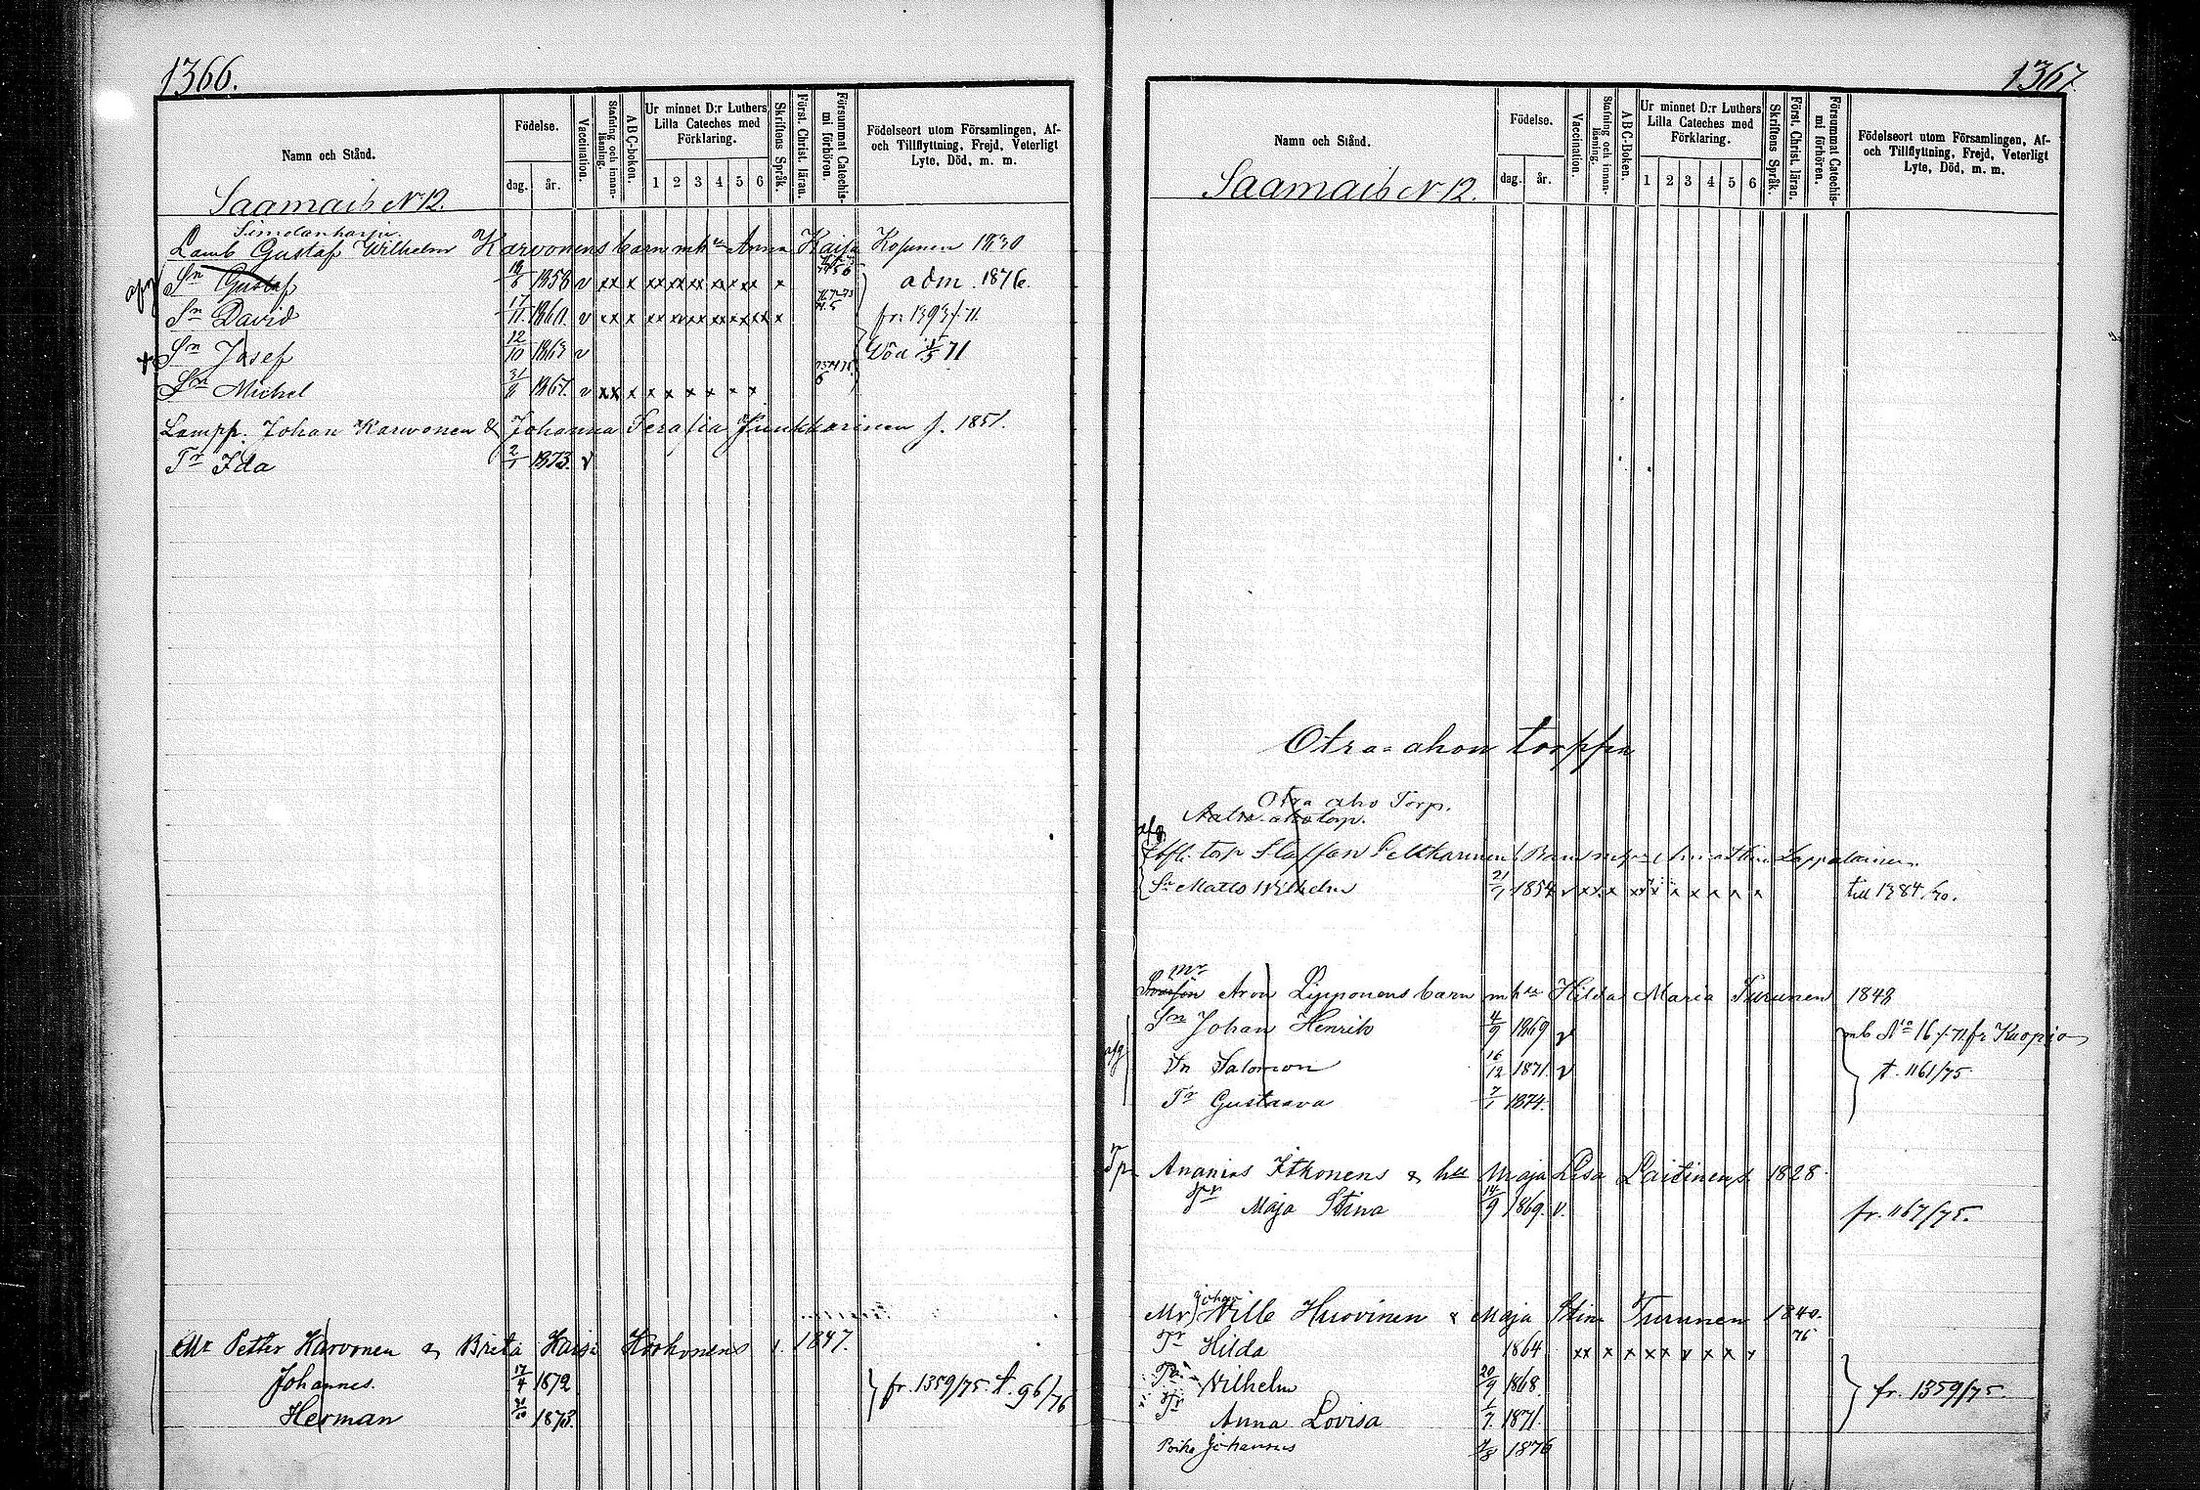 1366.
Namn och Stånd.
Födelse.
dag.
år.
Vaccination.
Stafning och innan-läsning.
ABC-boken.
Ur minnet D:r Luthers Lilla Cateches med Förklaring.
1 2 3 4 5 6
Skriftens Språk.
Först. Christ. läran.
Försummat Catechis-mi förhören.
Födelseort utom Församlingen, Af-
och Tillflyttning, Frejd, Veterligt
Lyte, Död, m. m.
Saamais N 12.
Lamb Gustaf Wilhelm Karvonens barn m hu Anna Kaisa Kosunen 1830
afg Sn Gustaf 1858 v xx x xx xx xx xx xx x adm. 1876.
Sn David 17/11 1860. v fr: 1393/71
+ Sn Josef 12/10 1863 v Död 71
Sn Michel 31/8 1867. v xx x x x x x x x
Lampp. Johan Karvonen & Johanna Serafia Junkkarinen f. 1851.
Tr Ida 2/1 1873. v
Mr Petter Karvonen & Brita Kaisa Korhonens 1847.
Johannes. 17/4 1872
Herman 1873. fr. 1359/75. t. 96/76
1367.
Namn och Stånd.
Födelse.
dag.
år.
Vaccination.
Stafning och innan-läsning.
ABC-Boken.
Ur minnet D:r Luthers Lilla Cateches med Förklaring.
1 2 3 4 5 6
Skriftens Språk.
Först. Christ. läran.
Försummat Catechis-mi förhören.
Födelseort utom Församlingen, Af-
och Tillflyttning, Frejd, Veterligt
Lyte, Död, m. m.
Saamais N 12.
Otra-ahon torppa
Otra aho Torp.
afg torp Staffan Pelkkarinen Lappalainen
Sn Matts Wilhelm 21/1 1854 v xx x x x x x x x till 1384/70.
Mr
Aron Lipponens barn m hu Hilda Maria Turunen 1848
Sn Johan Henrik 4/9 1869 v mb No 16/71 fr Kuopio
afg Sn Salomon 16/12 1871. v t. 1161/75
Tr Gustaava 7/1 1874.
Tp Ananias Itkonens & hu Maja Lisa Laitinens 1828.
Tr Maja Stina 14/9 1869. v. fr. 1167/75.
Mr Johan Wille Huovinen & Maja Stina Turunen 1840.
Tr Hilda 1864 xx x x x x x x x x 76
Wilhelm 20/9 1868. fr. 1359/75
Tr Anna Lovisa 1/7 1871.
Poika Johannes 1876